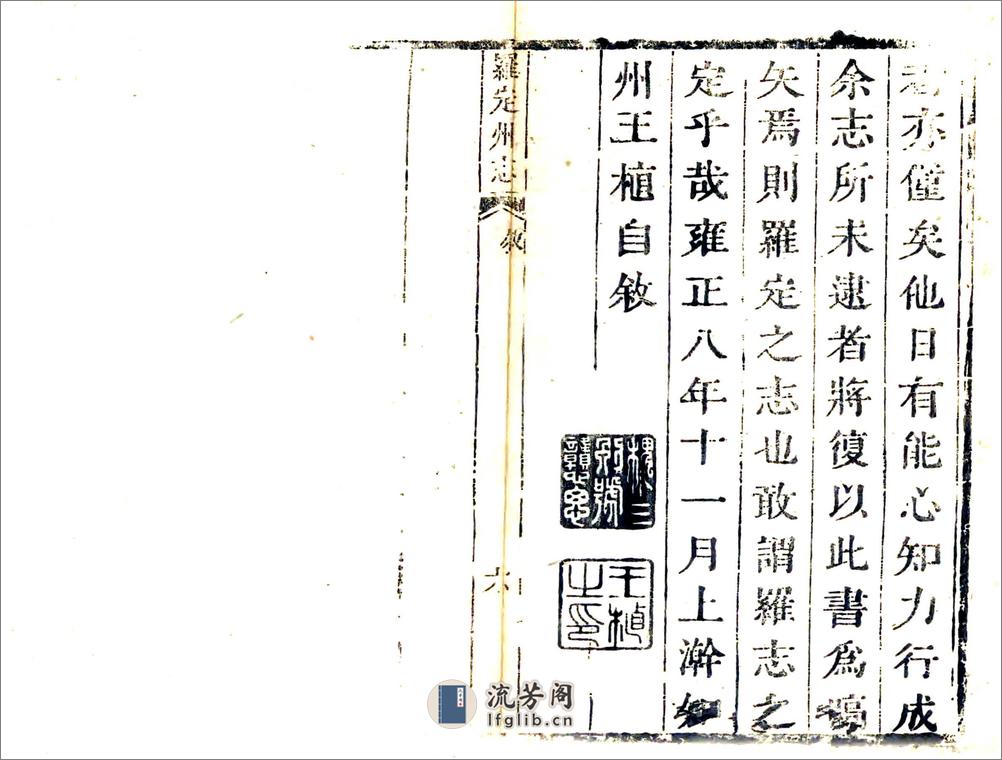 亦僅矣他日有能心知力行成
余志所未逮者將復以此書為
矢焉則羅定之志也敢謂羅志之
定乎哉雍正八年十一月上澣知
州王植自敘
槐三
別號
戇思
王植
之印
羅定州志
敘
六
流芳阁
lfglib.cn